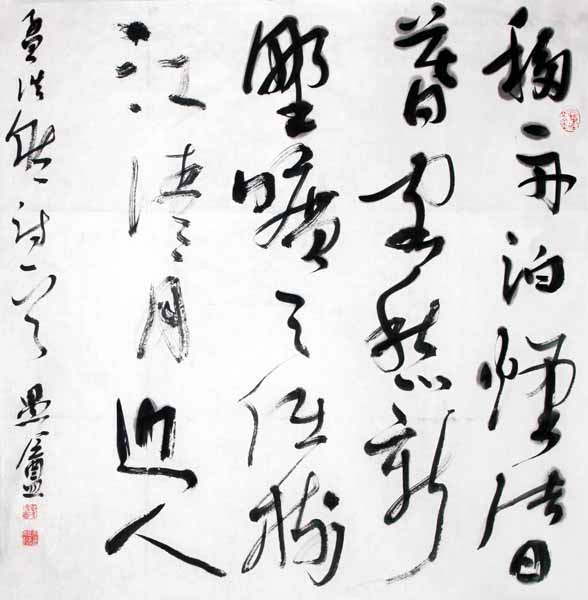 移舟泊煙渚日
暮客愁新
野曠天低樹
江清月近人
孟浩然詩一首 愚盦